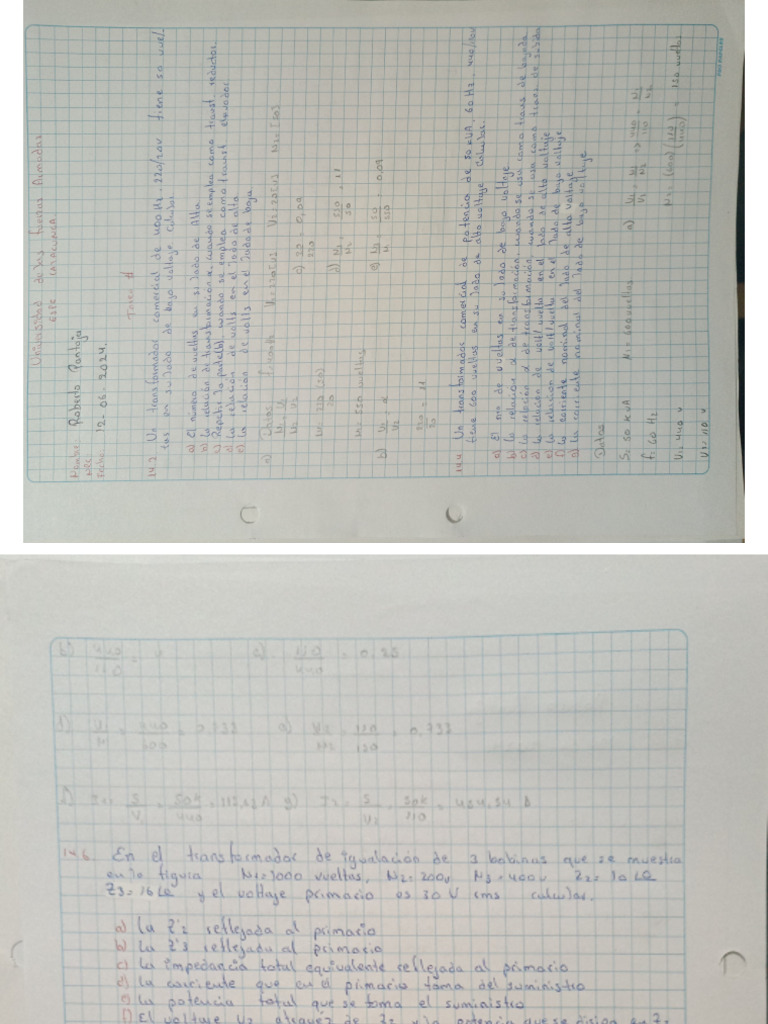 Universidad de las Fuerzas Armadas
ESPE LATACUNGA
Nombre: Roberto Pantoja
NRC:
Fecha: 12-06-2024.
Tarea 1
14.2 Un transformador comercial de 400 Hz, 220/20V tiene 50 vuel
tas en su lado de bajo voltaje. Calcular.
a) El número de vueltas en su lado de Alta
b) La relación de transformación α cuando se emplea como transf. reductor.
c) Repetir la parte(b), cuando se emplea como transf. elevador
d) La relación de volts en el lado de alta
e) La relación de volts en el lado de baja
a) Datos
b) V1/V2 = α
220/20 = 11
c) 20/220 = 0,09
14.4 Un transformador comercial de potencia de 50 kVA, 60 Hz, 440/110V
tiene 600 vueltas en su lado de alto voltaje Calcular.
a) El nro de vueltas en su lado de bajo voltaje
b) La relación α de transformación, cuando se usa como trans de bajada
c) La relación α de transformación, cuando se usa como trans de subida
d) La relación de volt/vuelta en el lado de alto voltaje
e) La relación de volt/vuelta en el lado de bajo voltaje
f) La corriente nominal del lado de alto voltaje
g) La corriente nominal del lado de bajo voltaje
Datos
S = 50 kVA N1 = 600 vueltas
f = 60 Hz
V1 = 440 V
V2 = 110 V
a) V1/V2 = N1/N2 => 440/110 = N1/N2
N2 = (600)(110/440) = 150 vueltas
b) 440/110 = 4 c) 110/440 = 0,25
= 0,733 = 0,733
14.6 En el transformador de igualación de 3 bobinas que se muestra
en la figura N1=1000 vueltas, N2=200v N3=400v Z2=10 LΩ
Z3=16 LΩ y el voltaje primario es 30 V rms calcular.
a) La Z'2 reflejada al primario
b) La Z'3 reflejada al primario
c) La impedancia total equivalente reflejada al primario
d) La corriente que en el primario toma del suministro
e) La potencia total que se toma el suministro
f) El voltaje V2 atravéz de Z2 y la potencia que se disipa en Z